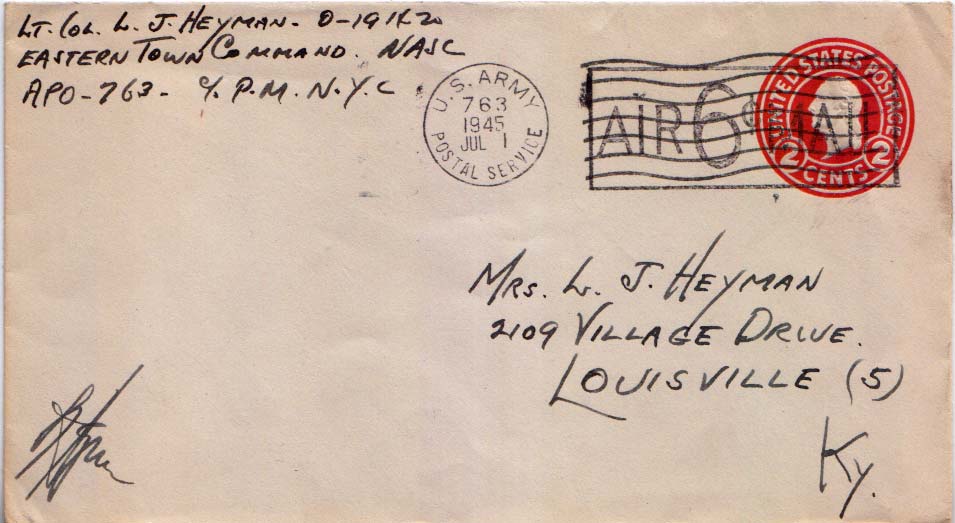 LT. COL. L. J. HEYMAN.
EASTERN TOWN COMMAND. NASC
APO-763- % P.M. N.Y.C
U.S. ARMY
763
1945
JUL 1
POSTAL SERVICE
AIR 6¢ MAIL
UNITED STATES POSTAGE
2 CENTS 2
MRS. L. J. HEYMAN
2109 VILLAGE DRIVE.
LOUISVILLE (5)
Ky.